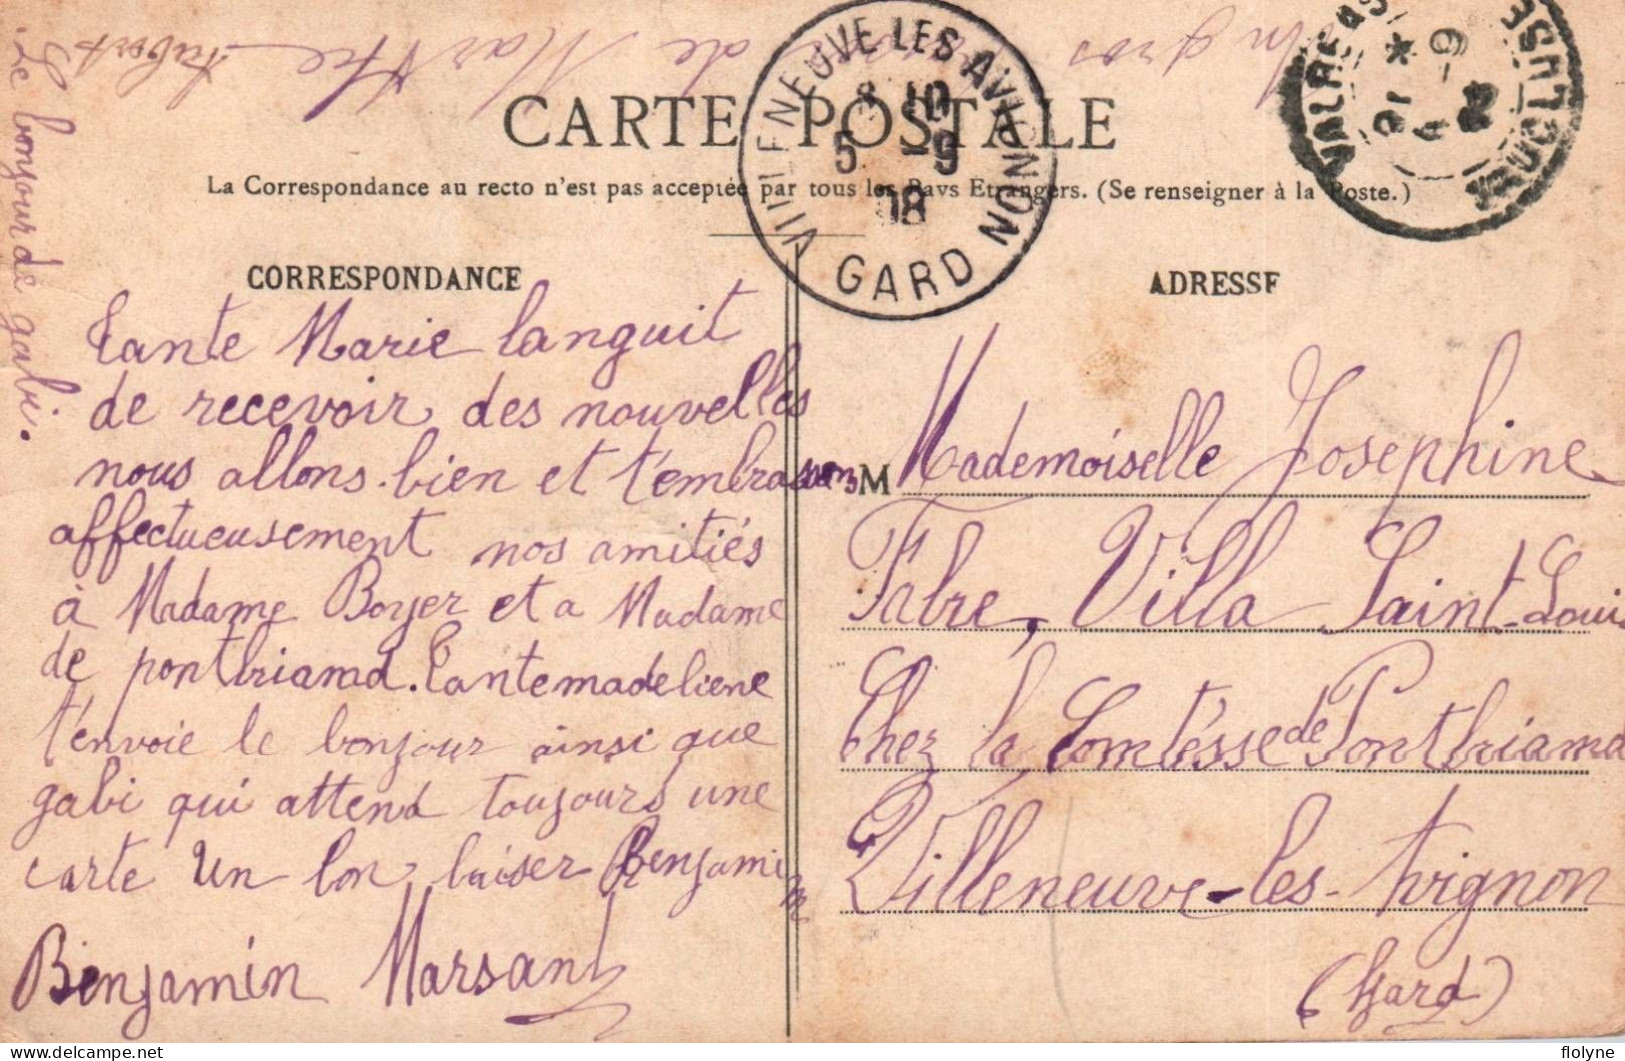 Un gros baiser de Marthe Aubert
CARTE POSTALE
La Correspondance au recto n'est pas acceptée par tous les Pays Etrangers. (Se renseigner à la Poste.)
VILLENEUVE-LES-AVIGNON
8 10
5 -9
08
GARD
VALRÉAS
16
4 -9
VAUCLUSE
Le bonjour de gabi.
CORRESPONDANCE
tante Marie languit
de recevoir des nouvelles
nous allons bien et t'embrassons
affectueusement nos amitiés
à Madame Boyer et a Madame
de pontbriamd. tante madeliene
t'envoie le bonjour ainsi que
gabi qui attend toujours une
carte un bon baiser Benjamin
Benjamin Marsan
ADRESSE
M Mademoiselle Josephine
Fabre, Villa Saint-Louis
Chez la Comtésse de Pontbriamd
Villeneuve-les-Avignon
(Gard)
flolyne